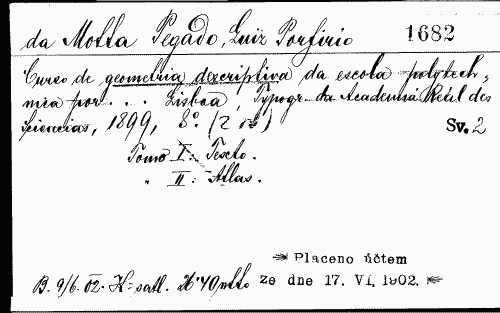 da Motta Pegado, Luiz Porfirio 1682
Curso de geometria descriptiva da escola polytech-
nica por . . . Lisboa, Typogr. da Academia Real des
sciencias, 1899, 8° (2 )
Sv. 2
Tomo I: Texto.
" II: Atlas.
Placeno účtem
B. 9/6. 02. K= satl. 26·40 ze dne 17. VI. 1902.